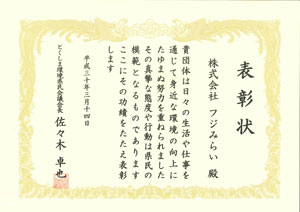 表彰状
株式会社 フジみらい 殿
貴団体は日々の生活や仕事を
通じて身近な環境の向上に
たゆまぬ努力を重ねられました
その真摯な態度や行動は県民の
模範となるものであります
ここにその功績をたたえ表彰
します
平成三十年三月十四日
とくしま環境県民会議会長 佐々木 卓也